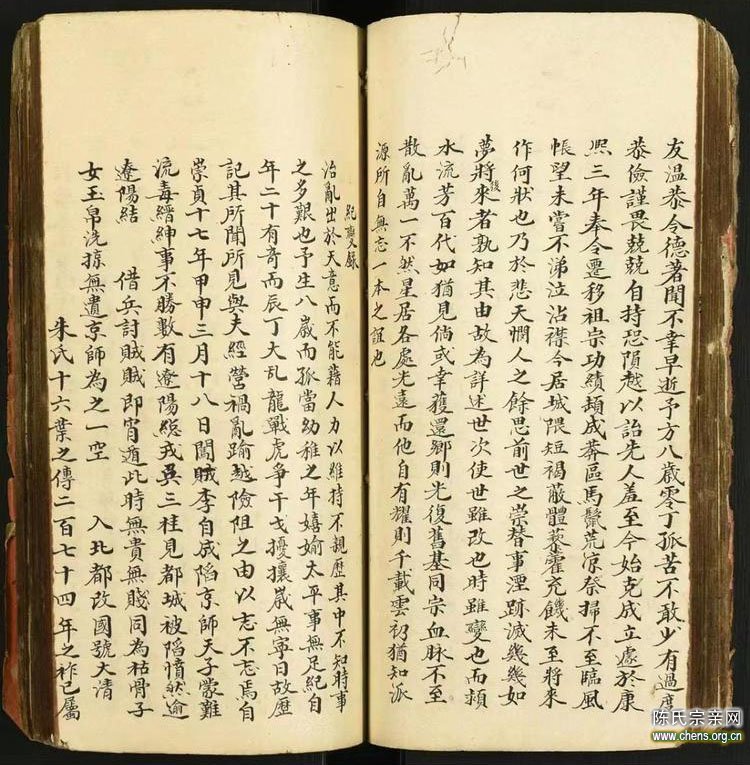 友溫恭令德著聞不幸早逝予方八歲零丁孤苦不敢少有過度
恭儉謹畏兢兢自持恐隕越以詒先人羞至今始克成立處於康
熙三年奉令遷移祖宗功績頹成莽區馬鬣荒涼祭掃不至臨風
悵望未嘗不涕泣沾襟今居城隈短褐蔽體藜藿充饑未至將來
作何狀也乃於悲天憫人之餘思前世之崇替事湮跡滅幾幾如
夢將後來者孰知其由故為詳述世次使世雖改也時雖變也而頴
水流芳百代如猶見倘或幸獲還鄉則光復舊基同宗血脉不至
散亂萬一不然星居各處光遠而他自有耀則千載雲礽猶知派
源所自無忘一本之誼也
紀變錄
治亂出於天意而不能藉人力以維持不親歷其中不知時事
之多艱也予生八歲而孤當幼稚之年嬉婾太平事無足紀自
年二十有奇而辰丁大亂龍戰虎爭干戈擾攘歲無寧日故歷
記其所聞所見與夫經營禍亂踰越險阻之由以志不忘焉自
崇貞十七年甲申三月十八日闖賊李自成陷京師天子蒙難
流毒縉紳事不勝數有遼陽總戎吳三桂見都城被陷憤然逾
遼陽結 借兵討賊賊即宵遁此時無貴無賤同為枯骨子
女玉帛洗掠無遺京師為之一空 入北都改國號大清
朱氏十六葉之傳二百七十四年之祚已屬
陈氏宗亲网
www.chens.org.cn